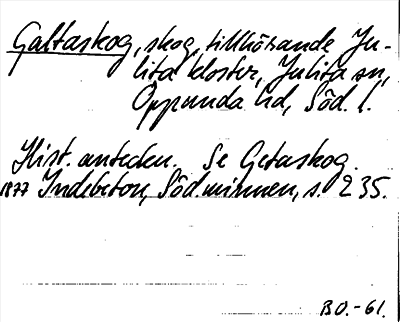 Galtaskog, skog, tillhörande Ju-
lita kloster, Julita sn,
Oppunda hd, Söd. l.
Hist. anteckn. Se Getaskog.
1877 Indebetou, Söd.minnen, s. 235.
BO.-61.